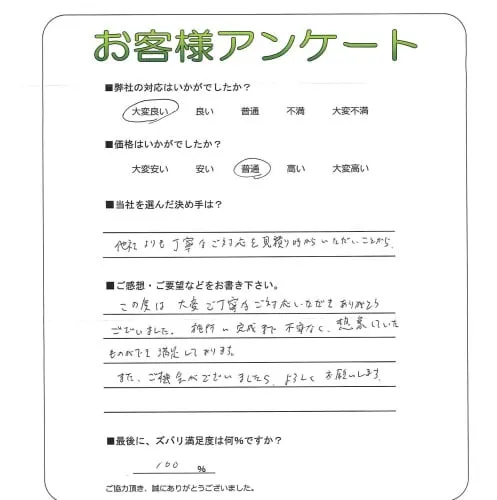 お客様アンケート
■弊社の対応はいかがでしたか？
大変良い 良い 普通 不満 大変不満
■価格はいかがでしたか？
大変安い 安い 普通 高い 大変高い
■当社を選んだ決め手は？
他社よりも丁寧なご対応を見積り時からいただいたことから
■ご感想・ご要望などをお書き下さい。
この度は大変ご丁寧なご対応いただきありがとう
ございました。 完成まで不安なく、想象していた
ものができ満足しております。
また、ご機会がございましたら、よろしくお願いします。
■最後に、ズバリ満足度は何%ですか？
100 %
ご協力頂き、誠にありがとうございました。